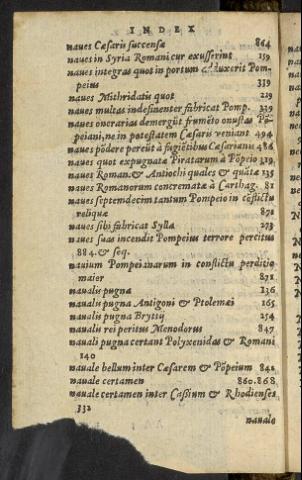 INDEX
naues Cæsaris succensæ 864
naues in Syria Romani cur exusserint 159
naues integras quot in portum adduxerit Pom-
peius 339
naues Mithridatis quot 219
naues multas indesinenter fabricat Pomp. 339
naues onerarias demergūt frumēto onustas Pō-
peiani, ne in potestatem Cæsaris veniant 494
naues pōdere pereūt à fugiētibus Cæsarianis 486
naues quot expugnatæ Piratarum à Pōpeio 319
naues Roman. & Antiochi quales & quātæ 135
naues Romanorum concrematæ à Carthag. 81
naues septemdecim tantum Pompeio in cōflictu
reliquæ 871
naues sibi fabricat Sylla 273
naues suas incendit Pompeius terrore percitus
884. & seq.
nauium Pompeianarum in conflictu perditio
maior 871
naualis pugna 136
naualis pugna Antigoni & Ptolemæi 165
naualis pugna Brytij 254
naualis rei peritus Menodorus 847
nauali pugna certant Polyxenidas & Romani
140
nauale bellum inter Cæsarem & Pōpeium 841
nauale certamen 860.868
nauale certamen inter Cassium & Rhodienses
332
nauale